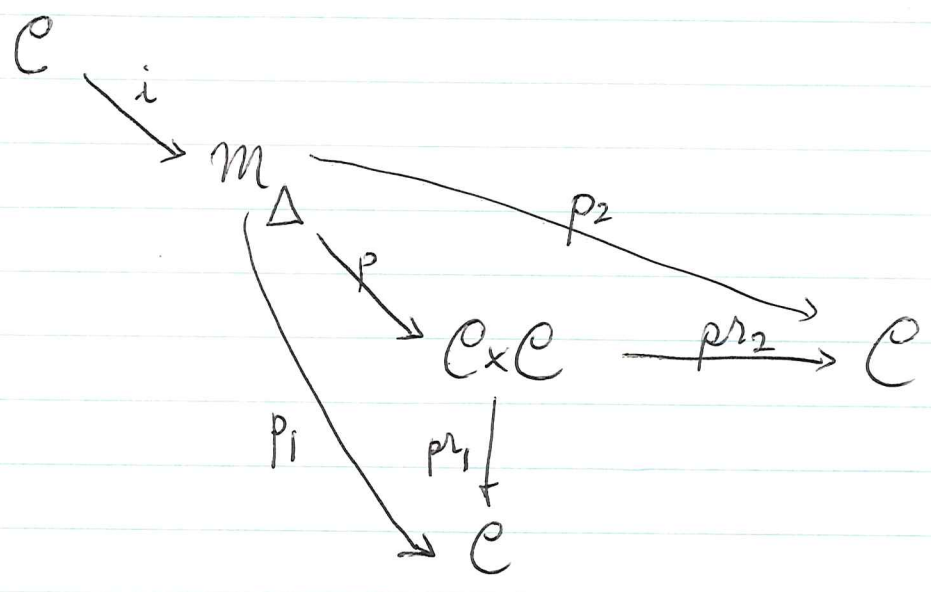 C
i
m
Δ
p2
p
C×C
pr2
C
p1
pr1
C